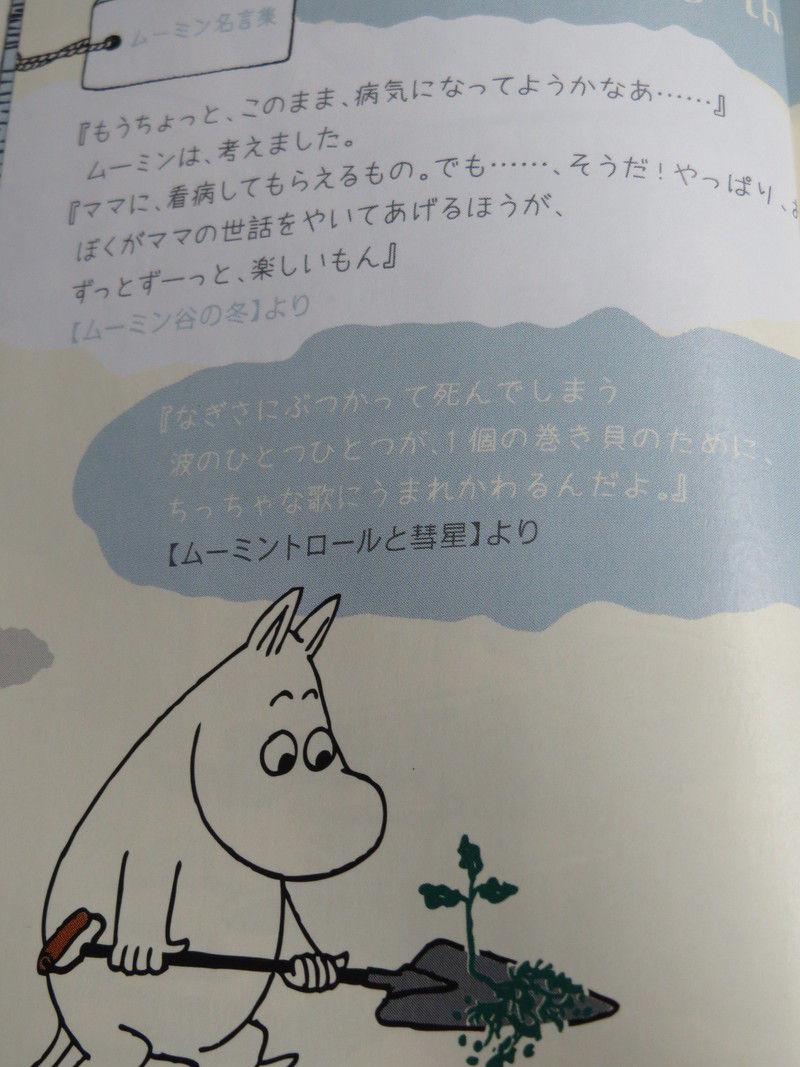 ムーミン名言集
th
『もうちょっと、このまま、病気になってようかなあ……』
ムーミンは、考えました。
『ママに、看病してもらえるもの。でも……、そうだ!やっぱり、
ぼくがママの世話をやいてあげるほうが、
ずっとずーっと、楽しいもん』
【ムーミン谷の冬】より
『なぎさにぶつかって死んでしまう
波のひとつひとつが、1個の巻き貝のために、
ちっちゃな歌にうまれかわるんだよ。』
【ムーミントロールと彗星】より